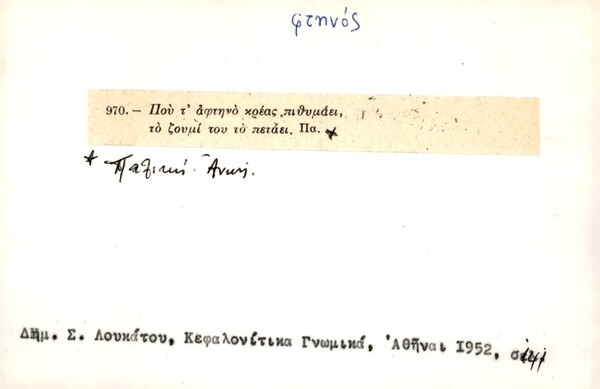 φτηνός
970. — Ποὺ τ' ἀφτηνὸ κρέας πιθυμάει,
τὸ ζουμί του τὸ πετάει. Πα. *
* Παξινή
Δημ. Σ. Λουκάτου, Κεφαλονίτικα Γνωμικά, Ἀθῆναι 1952, σελ.